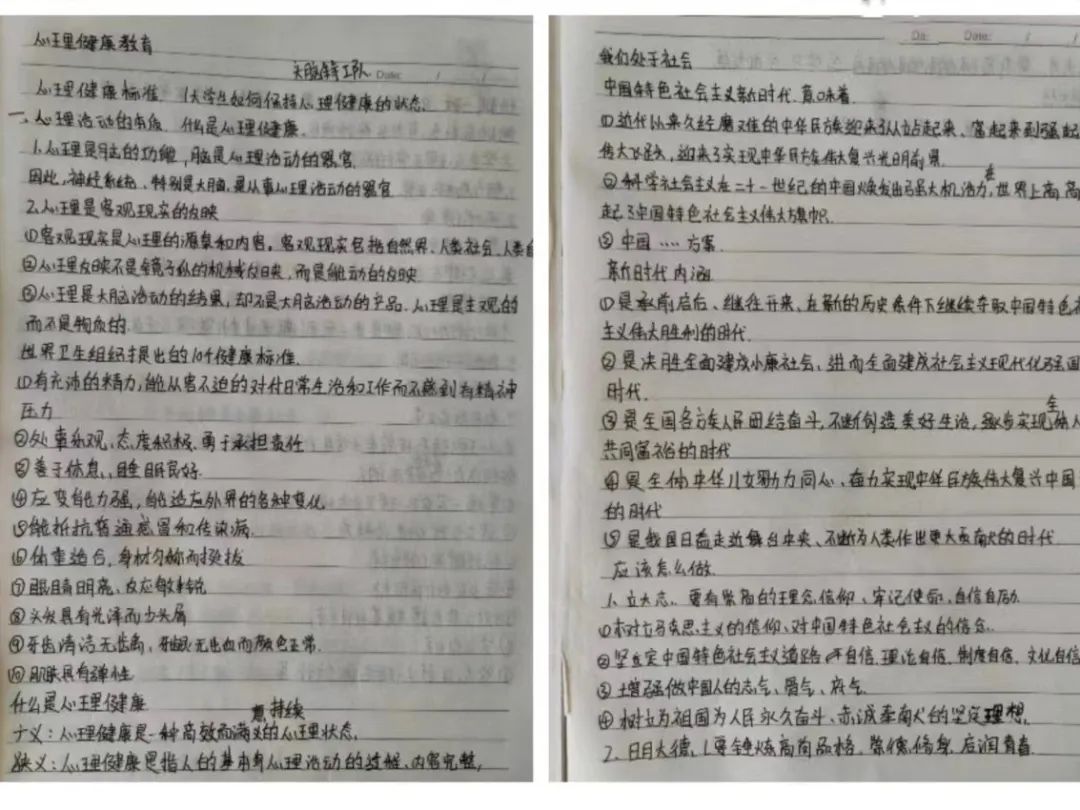 心理健康教育
Date: / /
心理健康标准. 大学生如何保持心理健康的状态.
一、心理活动的本质. 什么是心理健康.
1.心理是脑的功能,脑是心理活动的器官.
因此,神经系统、特别是大脑,是从事心理活动的器官
2.心理是客观现实的反映
①客观现实是心理的源泉和内容,客观现实包括自然界、人类社会、人类自
②心理反映不是镜子似的机械反映,而是能动的反映
③心理是大脑活动的结果,却不是大脑活动的产品.心理是主观的
而不是物质的.
世界卫生组织提出的10个健康标准.
①有充沛的精力,能从容不迫的对付日常生活和工作而不感到有精神
压力
②处事乐观、态度积极、勇于承担责任
③善于休息、睡眠良好.
④应变能力强,能适应外界的各种变化
⑤能抵抗普通感冒和传染病.
⑥体重适合,身材匀称而挺拔
⑦眼睛明亮、反应敏锐
⑧头发具有光泽而少头屑
⑨牙齿清洁无齿离,牙龈无出血而颜色正常.
⑩肌肤具有弹性
什么是心理健康
广义:心理健康是一种高效而满意的持续心理状态.
狭义:心理健康是指人的基本有心理活动的过程、内容完整,
Da: Date: / /
我们处于社会
中国特色社会主义新时代.意味着.
①近代以来久经磨难的中华民族迎来了从站起来、富起来到强起
伟大飞跃,迎来了实现中华民族伟大复兴光明前景.
②科学社会主义在二十一世纪的中国焕发出强大机活力,在世界上高高
起了中国特色社会主义伟大旗帜.
③中国....方案.
新时代内涵
①是承前启后、继往开来、在新的历史条件下继续夺取中国特色社
主义伟大胜利的时代.
②是决胜全面建成小康社会、进而全面建成社会主义现代化强国
时代.
③是全国各族人民团结奋斗,不断创造美好生活、逐步实现全体人
共同富裕的时代
④是全体中华儿女勠力同心、奋力实现中华民族伟大复兴中国
的时代
⑤是我国日益走近舞台中央、不断为人类作出更大贡献的时代.
应该怎么做.
1、立大志.. 要有崇高的理念信仰、牢记使命,自信自励.
①树立马克思主义的信仰、对中国特色社会主义的信念.
②坚定中国特色社会主义道路自信、理论自信、制度自信、文化自信
③增强做中国人的志气、骨气、底气.
④树立为祖国为人民永久奋斗、赤诚奉献的坚定理想.
2、明大德,要锤炼高尚品格,崇德修身,启润青春.